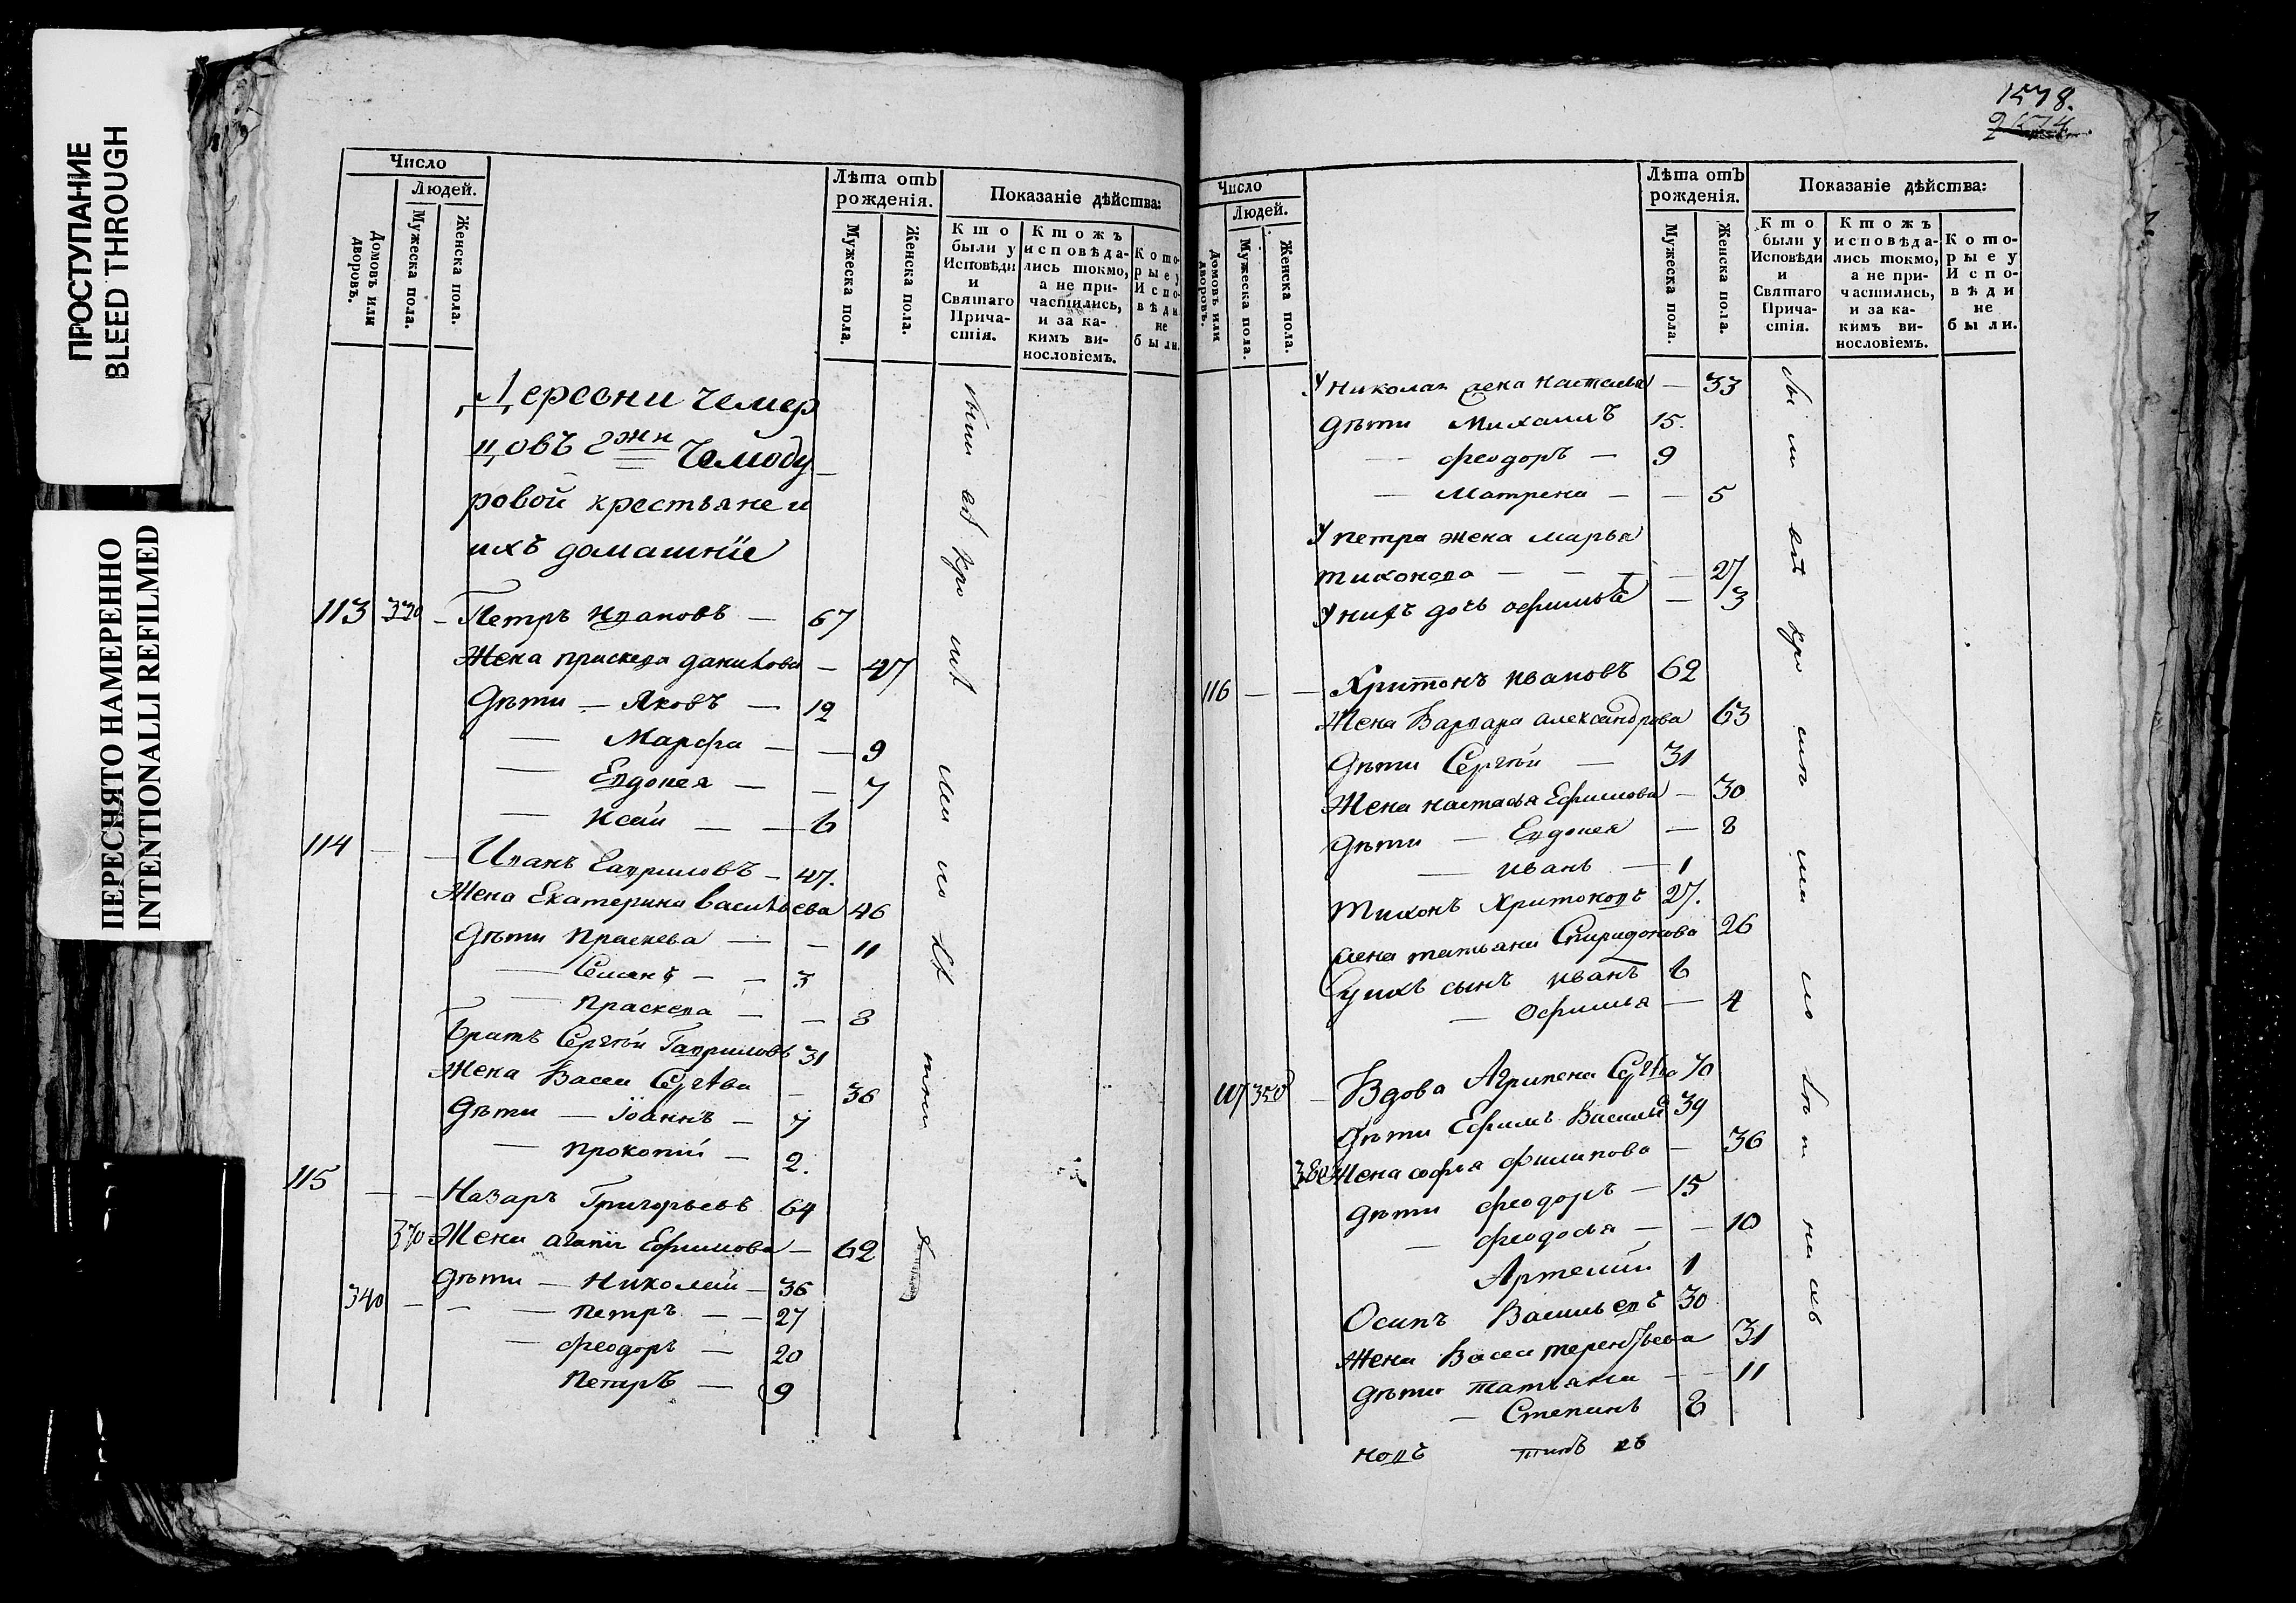 ПРОСТУПАНИЕ
BLEED THROUGH
ПЕРЕСНЯТО НАМЕРЕННО
INTENTIONALLI REFILMED
Число
Людей.
Домовъ или дворовъ.
Мужеска пола.
Женска пола.
Лѣта отъ рожденія.
Мужеска пола.
Женска пола.
Показаніе дѣйства:
Кто были у Исповѣди и Святаго Причастія.
Ктожъ исповѣдались токмо, а не причастились, и за какимъ винословіемъ.
Которые у Исповѣди не были.
Деревни Чемер
цовъ гжи Чемоду
ровой крестьяне и
ихъ домашнїе
113 330 — Петръ Ивановъ — 67
Жена прискева данилова — 47
Дѣти — Яковъ — 12
— Марфа — — 9
— Евдокея — — 7
— Ксан — — 6
114 — — Иванъ Гавриловъ — 47.
Жена Екатерина васильева 46
Дѣти Праскева — — 11
— Семенъ — — 3
— праскева — — 8
братъ Сергѣй Гавриловъ 31
Жена Васса Сергѣва — 36
Дѣти — Іоаннъ — 7
— прокопий — 2.
115 — — Назаръ Григорьевъ 64
370 Жена агапия Ефимова — 62
Дѣти — Николай — 36
340 — — — петръ — — 27
— феодоръ — 20
Петръ — 9
1578.
Число
Людей.
Домовъ или дворовъ.
Мужеска пола.
Женска пола.
Лѣта отъ рожденія.
Мужеска пола.
Женска пола.
Показаніе дѣйства:
Кто были у Исповѣди и Святаго Причастія.
Ктожъ исповѣдались токмо, а не причастились, и за какимъ винословіемъ.
Которые у Исповѣди не были.
У николая жена настасья — 33
Дѣти Михаилъ 15.
— феодоръ — 9
— Матрена — — 5
У петра жена марья
тихонова — — — — 27
У нихъ дочь офимья — 3
116 — — Харитонъ ивановъ 62
Жена Варвара александрова 63
Дѣти Сергѣй — 31
Жена настасья Ефимова — 30
Дѣти — Евдокея — 8
— иванъ — 1
тихонъ Харитоновъ 27.
жена татьяна Спиридонова 26
У нихъ сынъ иванъ 6
— Офимья — 4
117 350 — Вдова Агрипена Сергѣва 70
Дѣти Ефимъ Васильевъ 39
380 Жена софья филипова — 36
Дѣти феодоръ — 15
— феодосья — — 10
Артемий 1
Осипъ Васильевъ 30
Жена Васса терентьева 31
Дѣти татьяна — — 11
— Степанъ 8